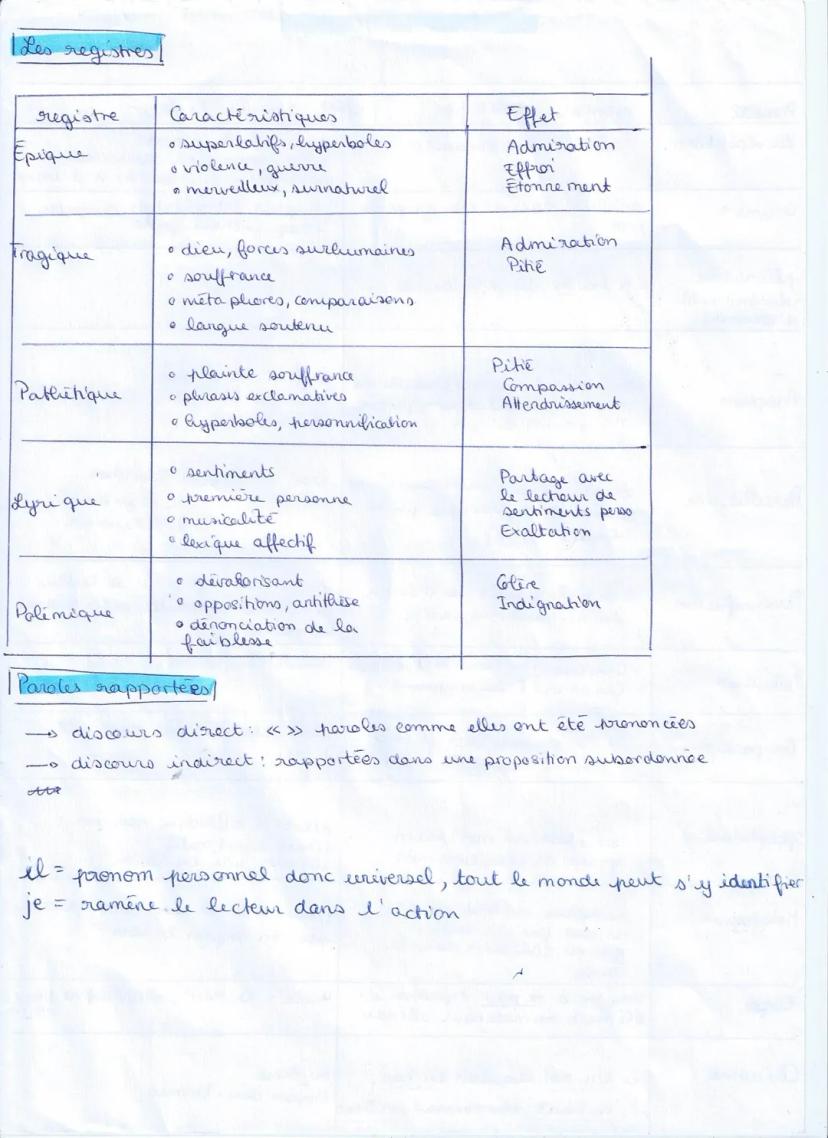 Les registres
registre Caractéristiques Effet
Épique
• superlatifs, hyperboles
• violence, guerre
• merveilleux, surnaturel
Admiration
Effroi
Étonnement
Tragique
• dieu, forces surhumaines
• souffrance
• métaphores, comparaisons
• langue soutenu
Admiration
Pitié
Pathétique
• plainte souffrance
• phrases exclamatives
• hyperboles, personnification
Pitié
Compassion
Attendrissement
Lyrique
• sentiments
• première personne
• musicalité
• lexique affectif
Partage avec
le lecteur de
sentiments perso
Exaltation
Polémique
• dévalorisant
• oppositions, antithèse
• dénonciation de la
faiblesse
Colère
Indignation
Paroles rapportées
→ discours direct : « » paroles comme elles ont été prononcées
→ discours indirect : rapportées dans une proposition subordonnée
il = pronom personnel donc universel, tout le monde peut s'y identifier
je = ramène le lecteur dans l'action